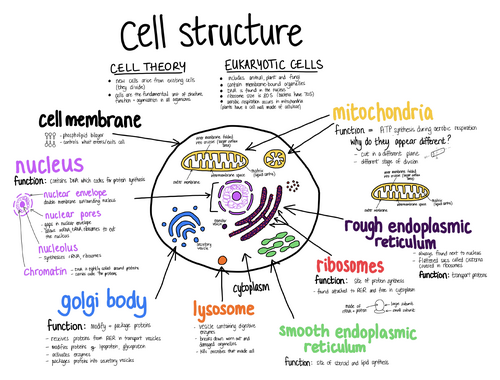 Cell structure
CELL THEORY
new cells arise from existing cells
(they divide)
cells are the fundamental unit of structure,
function + organisation in all organisms
EUKARYOTIC CELLS
includes animal, plant and fungi
contain membrane-bound organelles
DNA is found in the nucleus
ribosome size is 80S (bacteria have 70S)
aerobic respiration occurs in mitochondria
(plants have a cell wall made of cellulose)
cell membrane
phospholipid bilayer
controls what enters/exits cell
nucleus
function: contains DNA which codes for protein synthesis
nuclear envelope
double membrane surrounding nucleus
nuclear pores
gaps in nuclear envelope
allows mRNA, ribosomes to exit
the nucleus
nucleolus
synthesises rRNA, ribosomes
chromatin
DNA is tightly coiled around proteins
carries codes for proteins
mitochondria
function = ATP synthesis during aerobic respiration
Why do they appear different?
cut in a different plane
different stages of division
inner membrane (folded
into cristae)
outer membrane
intermembrane space
secretory
vesicle
cytoplasm
rough endoplasmic
reticulum
always found next to nucleus
flattened sacs called cisternae
covered in ribosomes
function: transport proteins
ribosomes
function: site of protein synthesis
found attached to RER and free in cytoplasm
made of
rRNA + protein
large subunit
small subunit
golgi body
function: modify + package proteins
receives proteins from RER in transport vesicles
modifies proteins
activates enzymes
packages proteins into secretory vesicles
lysosome
vesicle containing digestive
enzymes
breaks down worn out and
damaged organelles
smooth endoplasmic
reticulum
function: site of steroid and lipid synthesis